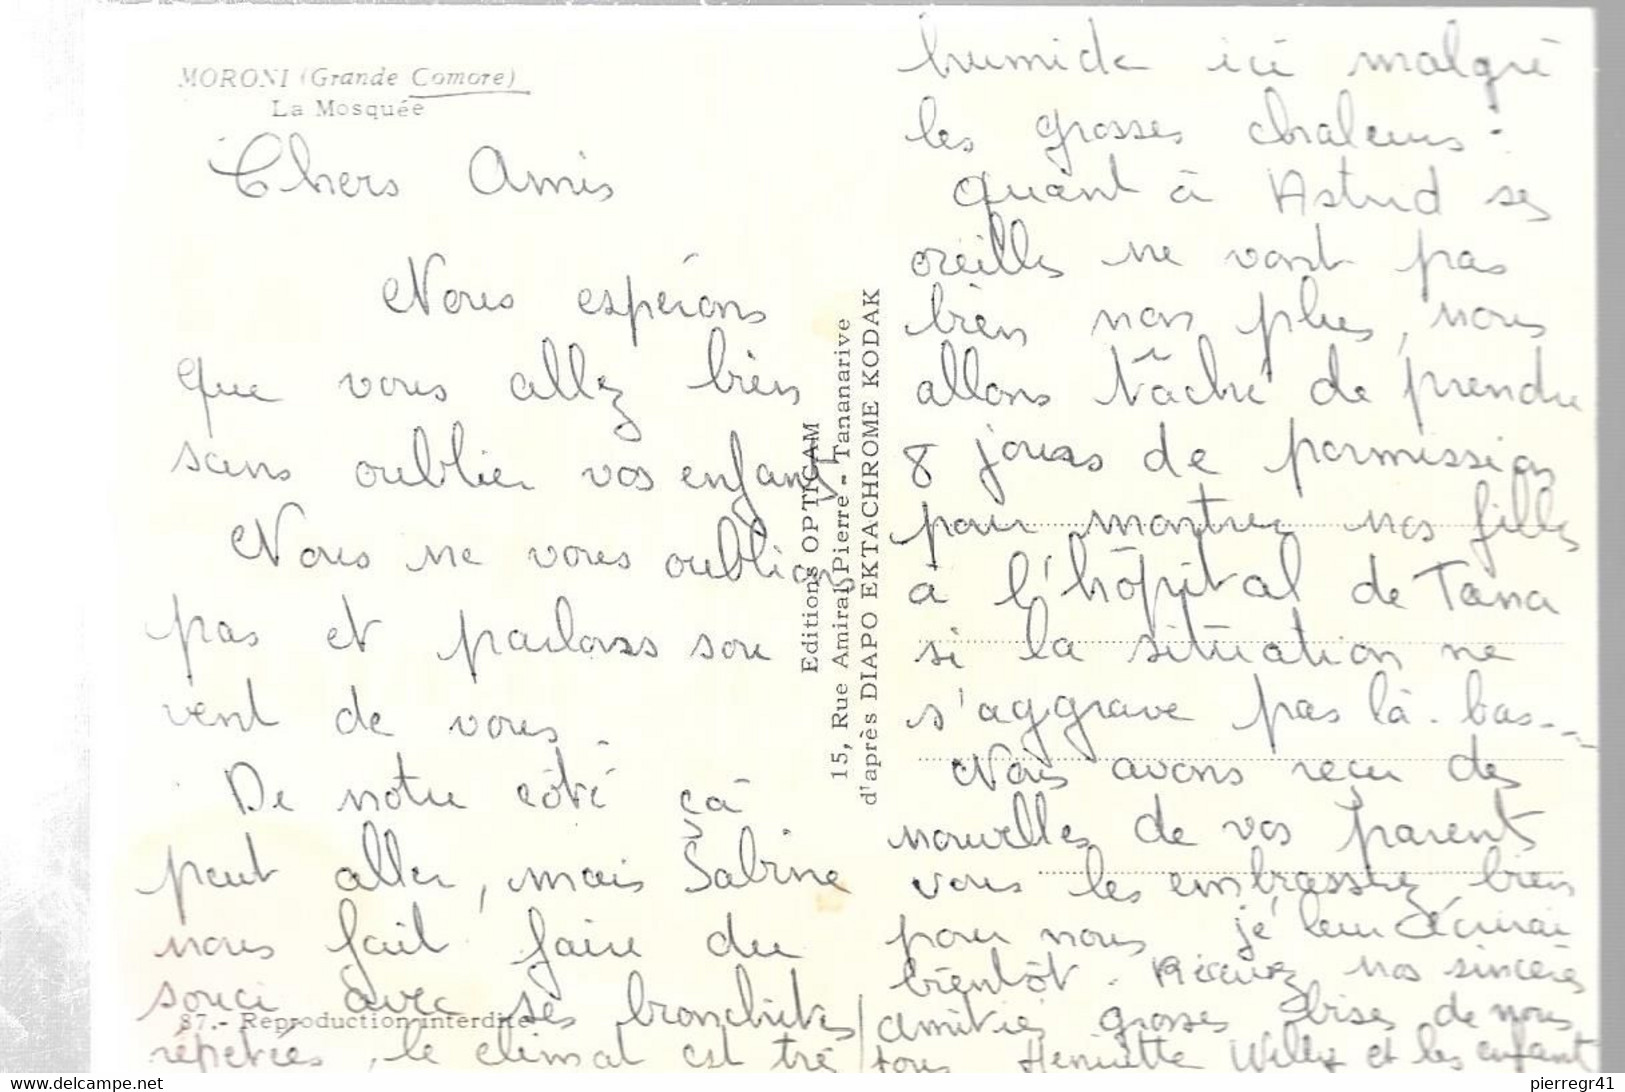 MORONI (Grande Comore)
La Mosquée
Chers Amis
Nous espérons
que vous allez bien
sans oublier vos enfants
Nous ne vous oublions
pas et parlons sou
vent de vous.
De notre côté çà
peut aller, mais Sabine
nous fait faire du
souci avec ses bronchites
répétées, le climat est trè
87.- Reproduction interdite
Editions OPTICAM
15, Rue Amiral Pierre - Tananarive
d'après DIAPO EKTACHROME KODAK
humide ici malgré
les grosses chaleurs.
quant à Astrid ses
oreilles ne vont pas
bien non plus, nous
allons tâché de prendre
8 jours de permission
pour montrer nos filles
à l'hôpital de Tana
si la situation ne
s'aggrave pas là-bas...
Nous avons reçu des
nouvelles de vos parents
vous les embrassez bien
pour nous je leur écrirai
bientôt. Recevez nos sincères
amitiés grosses bises de nous
tous Henriette Willy et les enfants
pierregr41